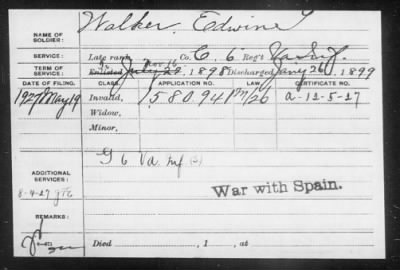 NAME OF SOLDIER: Walker, Edwine
SERVICE: Late rank, Co. C, 6 Reg't Va Inf.
TERM OF SERVICE: Enlisted July 22, 1898 Discharged Jany 26, 1899
Nov 16
DATE OF FILING. CLASS. APPLICATION NO. LAW. CERTIFICATE NO.
1927 May 19 Invalid, 1580941 a-12-5-27
Widow,
Minor,
G 6 Va. Inf
ADDITIONAL SERVICES:
8-4-27
War with Spain.
REMARKS:
Died , 1 , at